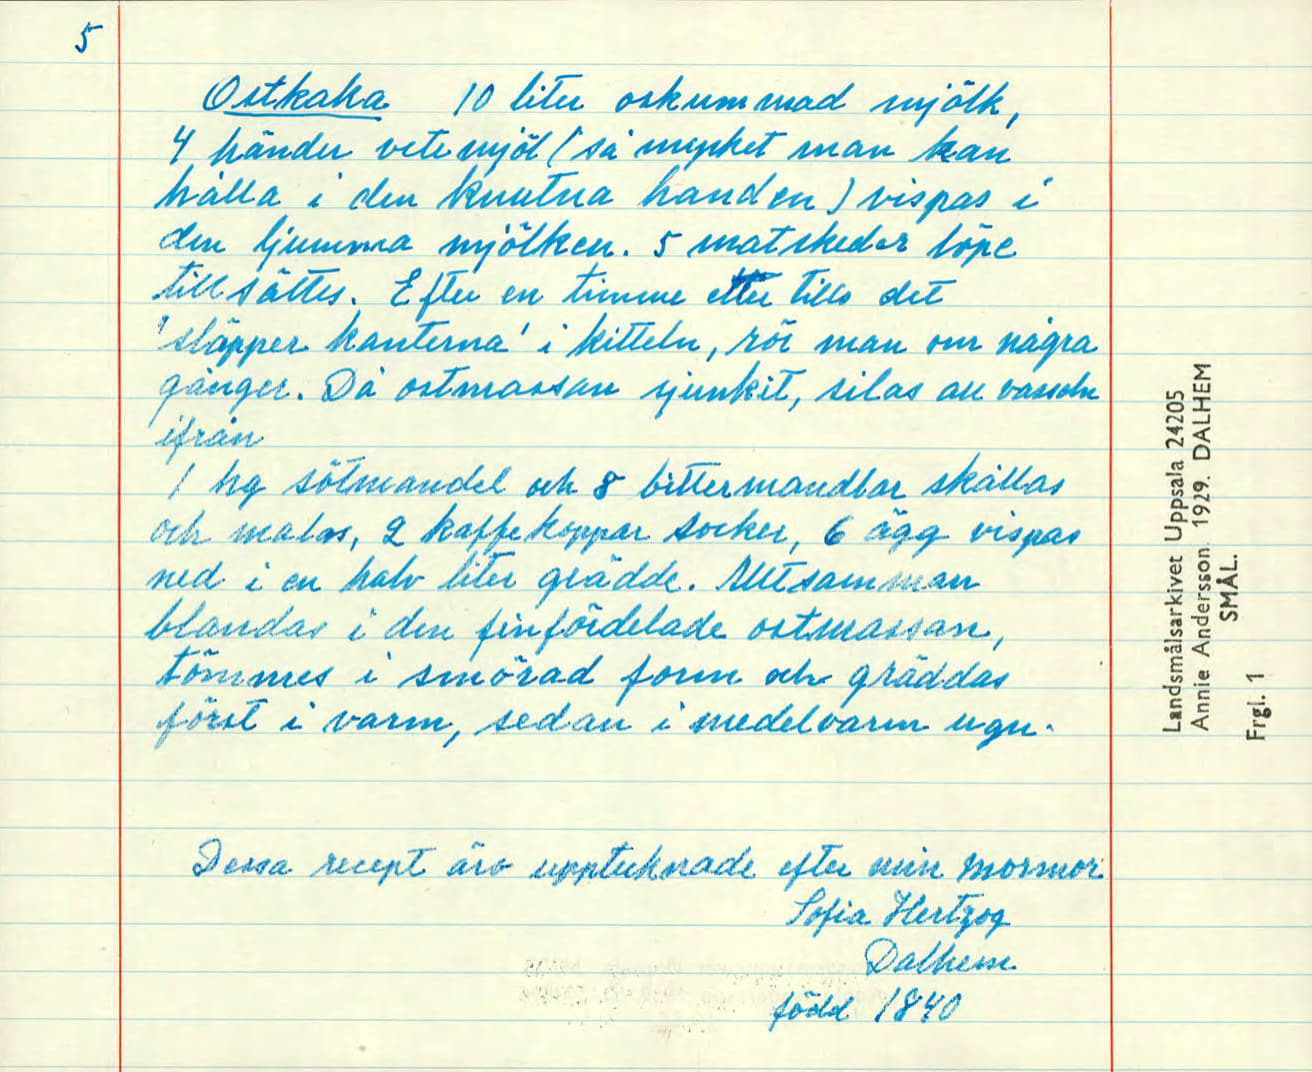 5
Ostkaka 10 liter oskummad mjölk,
4 händer vetemjöl (så mycket man kan
hålla i den knutna handen) vispas i
den ljumma mjölken. 5 matskedar löpe
tillsättes. Efter en timme eller tills det
'släpper kanterna' i kitteln, rör man om några
gånger. Då ostmassan sjunkit, silas all vasseln
ifrån
1 hg sötmandel och 8 bittermandlar skållas
och malas, 2 kaffekoppar socker, 6 ägg vispas
ned i en halv liter grädde. Alltsamman
blandas i den finfördelade ostmassan,
tömmes i smörad form och gräddas
först i varm, sedan i medelvarm ugn.
Dessa recept äro upptecknade efter min mormor
Sofia Hertzog
Dalhem
född 1840
Landsmålsarkivet Uppsala 24205
Annie Andersson. 1929. DALHEM
SMÅL.
Frgl. 1